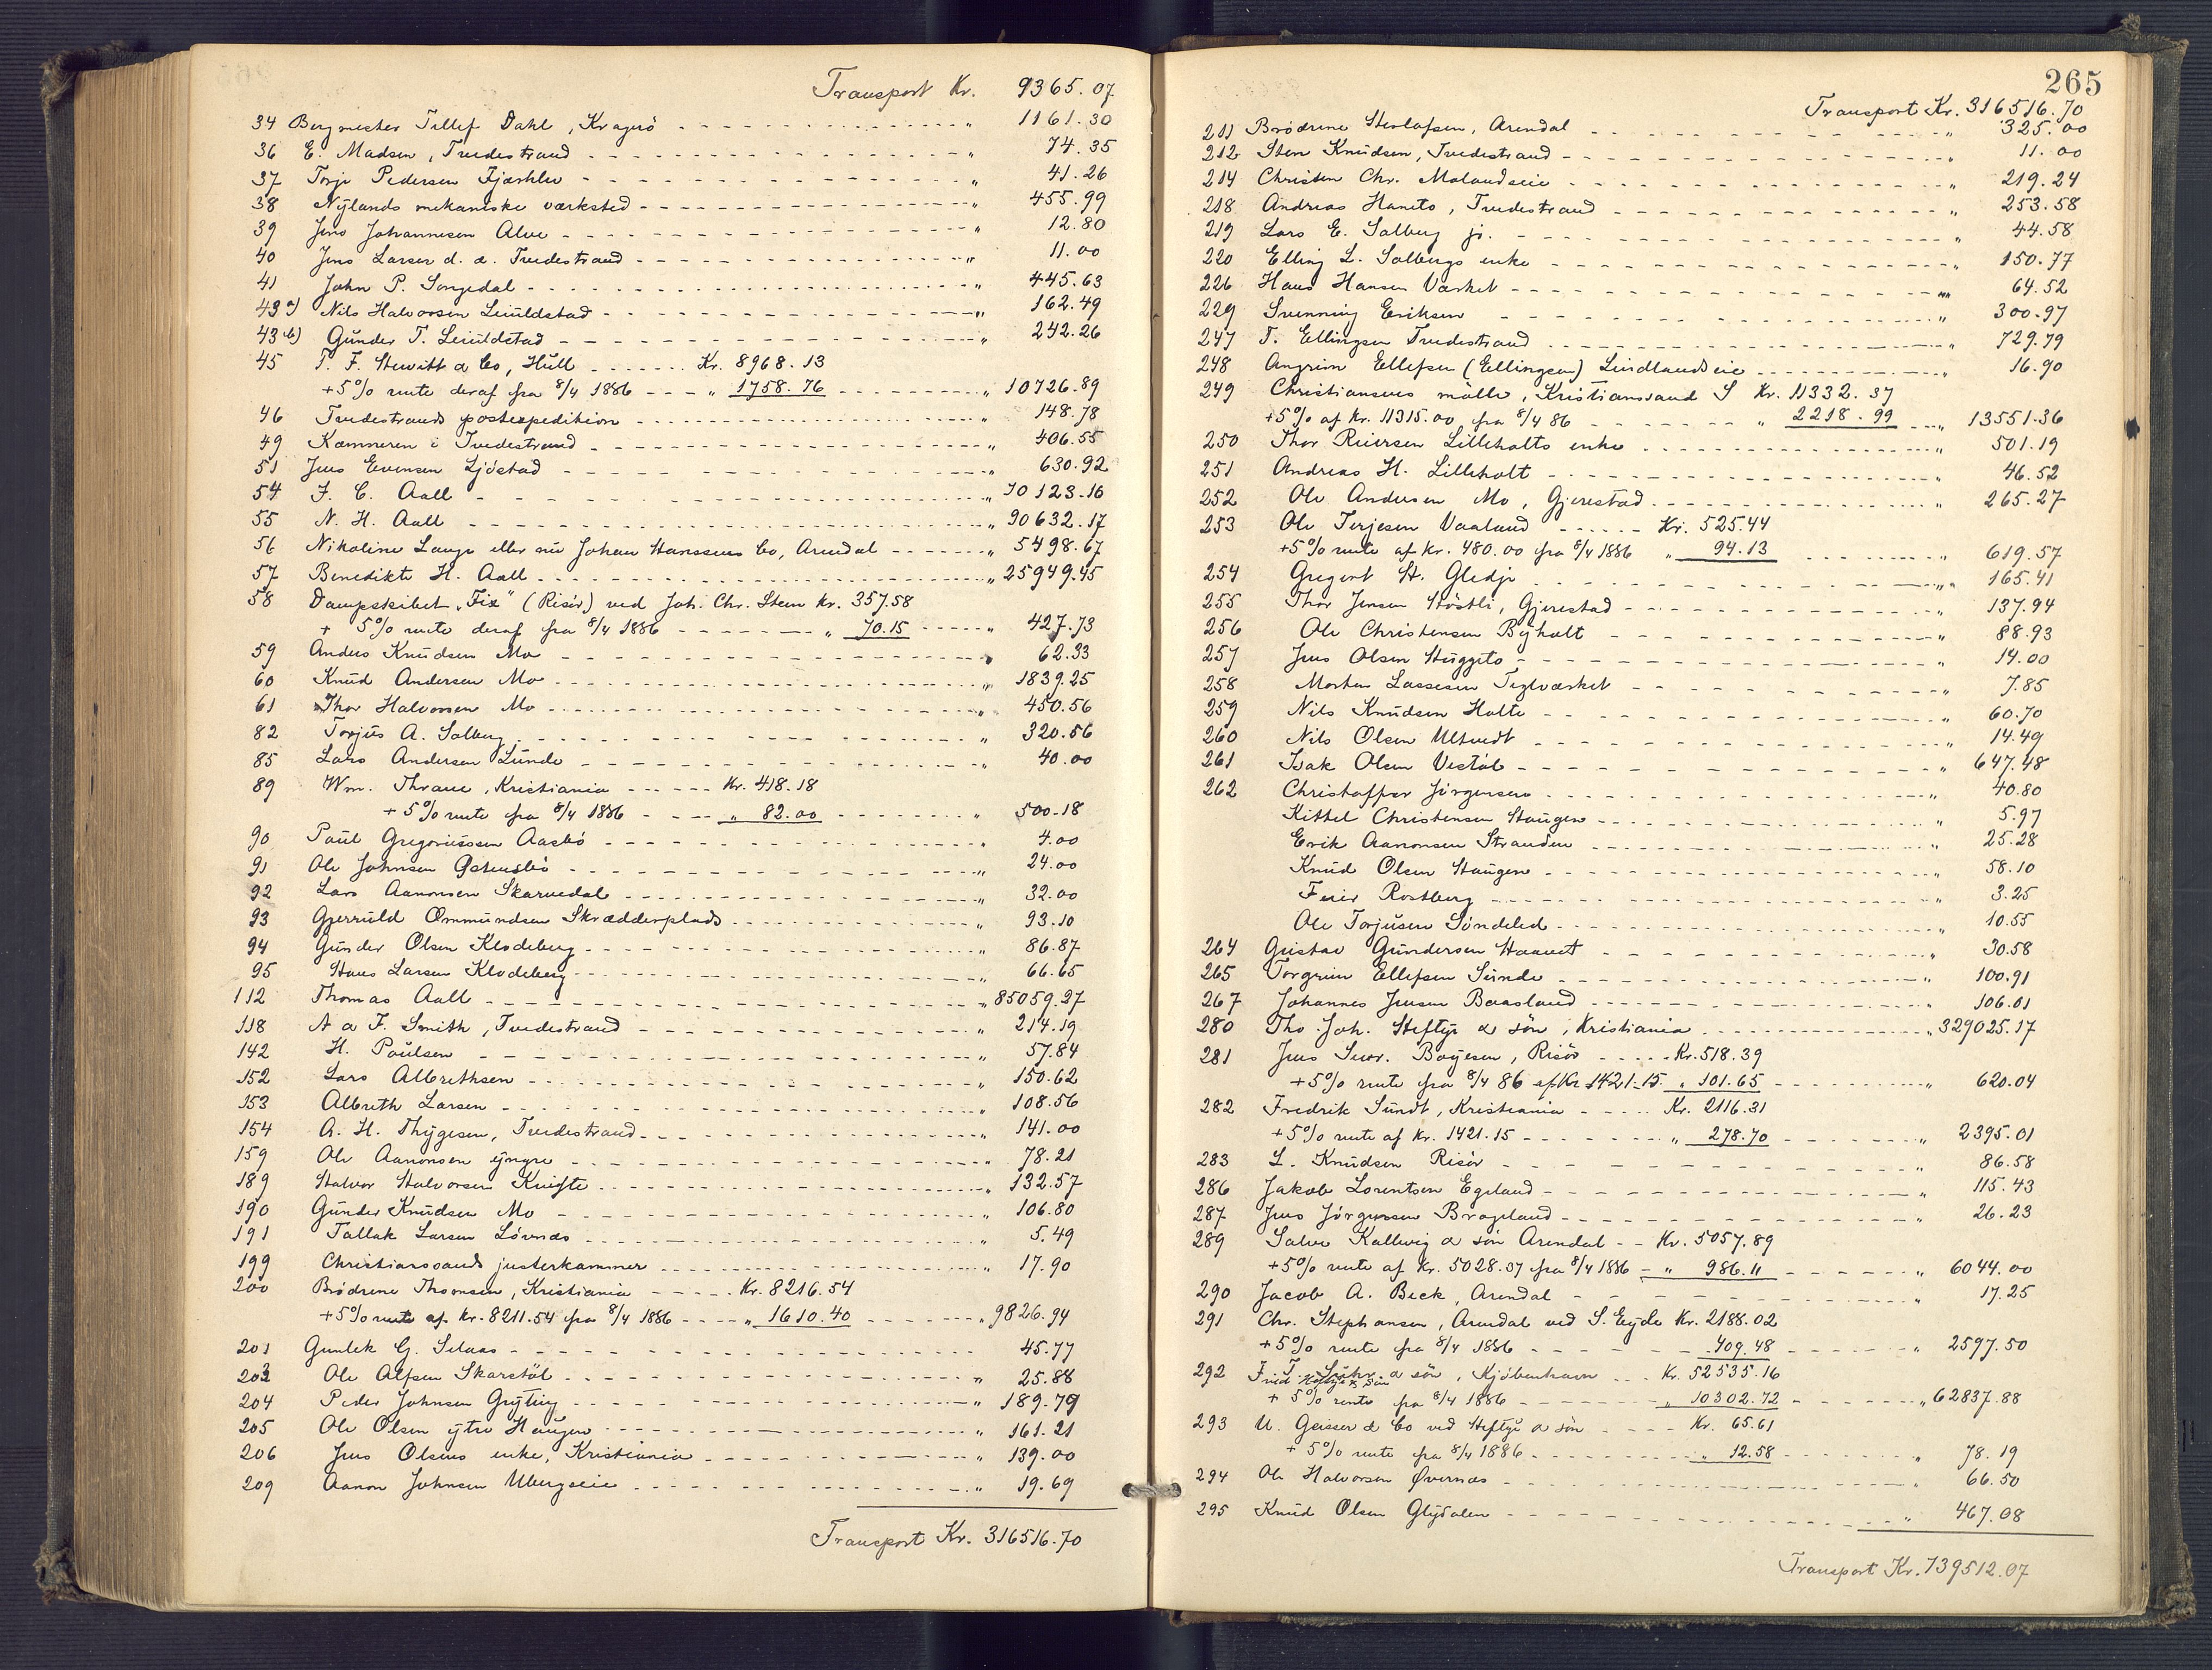 Transport Kr. 9365.07
34 Bergmester Tellef Dahl, Kragerö " 1161.30
36 E. Madsen, Tvedestrand " 74.35
37 Torje Pedersen Fjærklev " 41.26
38 Nÿlands mekaniske værksted " 455.99
39 Jens Johannesen Alve " 12.80
40 Jens Larsen d. æ. Tvedestrand " 11.00
41 John P. Songedal " 445.63
43 a) Nils Halvorsen Leiüldstad " 162.49
43 b) Günder T. Leiüldstad " 242.26
45 T. F. Hewitt & Co, Hüll Kr. 8968.13
+5% rente deraf fra 8/4 1886 " 1758.76 " 10726.89
46 Tvedestrands postexpedition " 148.78
49 Kæmneren i Tvedestrand " 406.55
51 Jens Evensen Ljöstad " 630.92
54 J. C. Aall " 70123.16
55 N. H. Aall " 90632.17
56 Nikoline Lange eller nu Johan Hanssens Co, Arendal " 5498.67
57 Benedikte H. Aall " 25949.45
58 Dampskibet "Fix" (Risör) ved Joh. Chr. Stern Kr. 357.58
+ 5% rente deraf fra 8/4 1886 " 70.15 " 427.73
59 Anders Knüdsen Mo " 62.33
60 Knüd Andersen Mo " 1839.25
61 Thor Halvorsen Mo " 450.56
82 Torjüs A. Solberg " 320.56
85 Lars Andersen Lünde " 40.00
89 Wm. Thrane, Kristiania Kr. 418.18
+5% rente fra 8/4 1886 " 82.00 " 500.18
90 Paül Gregoriüssen Aasbö " 4.00
91 Ole Johnsen Østensbö " 24.00
92 Lars Aanonsen Skarvedal " 32.00
93 Gjerrüld Ommündsen Skrædderplads " 93.10
94 Günder Olsen Klodeberg " 86.87
95 Hans Larsen Klodeberg " 66.65
112 Thomas Aall " 85059.27
118 A & F. Smith, Tvedestrand " 214.19
142 H. Poülsen " 57.84
152 Lars Albrethsen " 150.62
153 Albreth Larsen " 108.56
154 A. H. Thÿgesen, Tvedestrand " 141.00
159 Ole Aanonsen ÿngre " 78.21
189 Halvor Halvorsen Knifte " 132.57
190 Günder Knüdsen Mo " 106.80
191 Tallak Larsen Lövnæs " 5.49
199 Christianssands justerkammer " 17.90
200 Brödrene Thomsen, Kristiania Kr. 8216.54
+5% rente af Kr. 8211.54 fra 8/4 1886 " 1610.40 " 9826.94
201 Gunlek G. Selaas 45.77
203 Ole Alfsen Skarstöl " 25.88
204 Peder Johnsen Grÿting " 189.79
205 Ole Olsen ÿtre Haügen " 161.21
206 Jens Olsens enke, Kristiania " 139.00
209 Aanon Johnsen Ubergseie " 19.69
Transport Kr. 316516.70
265
Transport Kr. 316516.70
211 Brödrene Herlofsen, Arendal " 325.00
212 Sten Knüdsen, Tvedestrand " 11.00
214 Christen Chr. Molandseie " 219.24
218 Andreas Haneto, Tvedestrand " 253.58
219 Lars E. Solberg jr. " 44.58
220 Elling L. Solbergs enke " 150.77
226 Hans Hansen Værket " 64.52
229 Svenning Eriksen " 300.97
247 T. Ellingsen Tvedestrand " 729.79
248 Angrim Ellefsen (Ellingsen) Lindlandseie " 16.90
249 Christiansens mölle, Kristianssand S Kr. 11332.37
+5% af Kr. 11315.00 fra 8/4 86 " 2218.99 " 13551.36
250 Thor Reiersen Lilleholts enke " 501.19
251 Andreas H. Lilleholt " 46.52
252 Ole Andersen Mo, Gjerestad " 265.27
253 Ole Terjesen Vaaland Kr. 525.44
+5% rente af Kr. 480.00 fra 8/4 1886 " 94.13 " 619.57
254 Gregert H. Gledje " 165.41
255 Thor Jensen Höstli, Gjerestad " 137.94
256 Ole Christensen Bÿholt " 88.93
257 Jens Olsen Hüggeto " 14.00
258 Morten Lassesen Teglværket " 7.85
259 Nils Knüdsen Holte " 60.70
260 Nils Olsen Ultvedt " 14.49
261 Isak Olsen Vestöl " 647.48
262 Christoffer Jörgensen " 40.80
Kittel Christensen Haügen " 5.97
Erik Aanonsen Stranden " 25.28
Knüd Olsen Haügen " 58.10
Feier Rostberg " 3.25
Ole Torjüsen Söndeled " 10.55
264 Güstav Gündersen Haavet " 30.58
265 Torgrim Ellefsen Sünde " 100.91
267 Johannes Jensen Baasland " 106.01
280 Tho Joh. Heftÿe & sön, Kristiania " 329025.17
281 Jens Swr. Boÿesen, Risör Kr. 518.39
+5% rente fra 8/4 86 af Kr 1421.15 " 101.65 " 620.04
282 Fredrik Sündt, Kristiania Kr. 2116.31
+5% rente af Kr. 1421.15 " 278.70 " 2395.01
283 L. Knüdsen Risör " 86.58
286 Jakob Lorentsen Egeland " 115.43
287 Jens Jörgensen Brageland " 26.23
289 Salve Kallevig & sön Arendal Kr. 5057.89
+5% rente af Kr. 5028.07 fra 8/4 1886 " 986.11 " 6044.00
290 Jacob A. Beck, Arendal " 17.25
291 Chr. Stephansen, Arendal ved S. Eÿde Kr. 2188.02
+5% rente fra 8/4 1886 409.48 " 2597.50
292 F. T. & sön, Kjöbenhavn Kr. 52535.16
ved Heftÿe & Sön
+ 5% rente fra 8/4 1886 " 10302.72 " 62837.88
293 U. Geisser & Co ved Heftÿe & sön Kr. 65.61
+ 5% rente fra 8/4 1886 " 12.58 " 78.19
294 Ole Halvorsen Øvernæs " 66.50
295 Knüd Olsen Glÿdalen " 467.08
Transport Kr. 739512.07